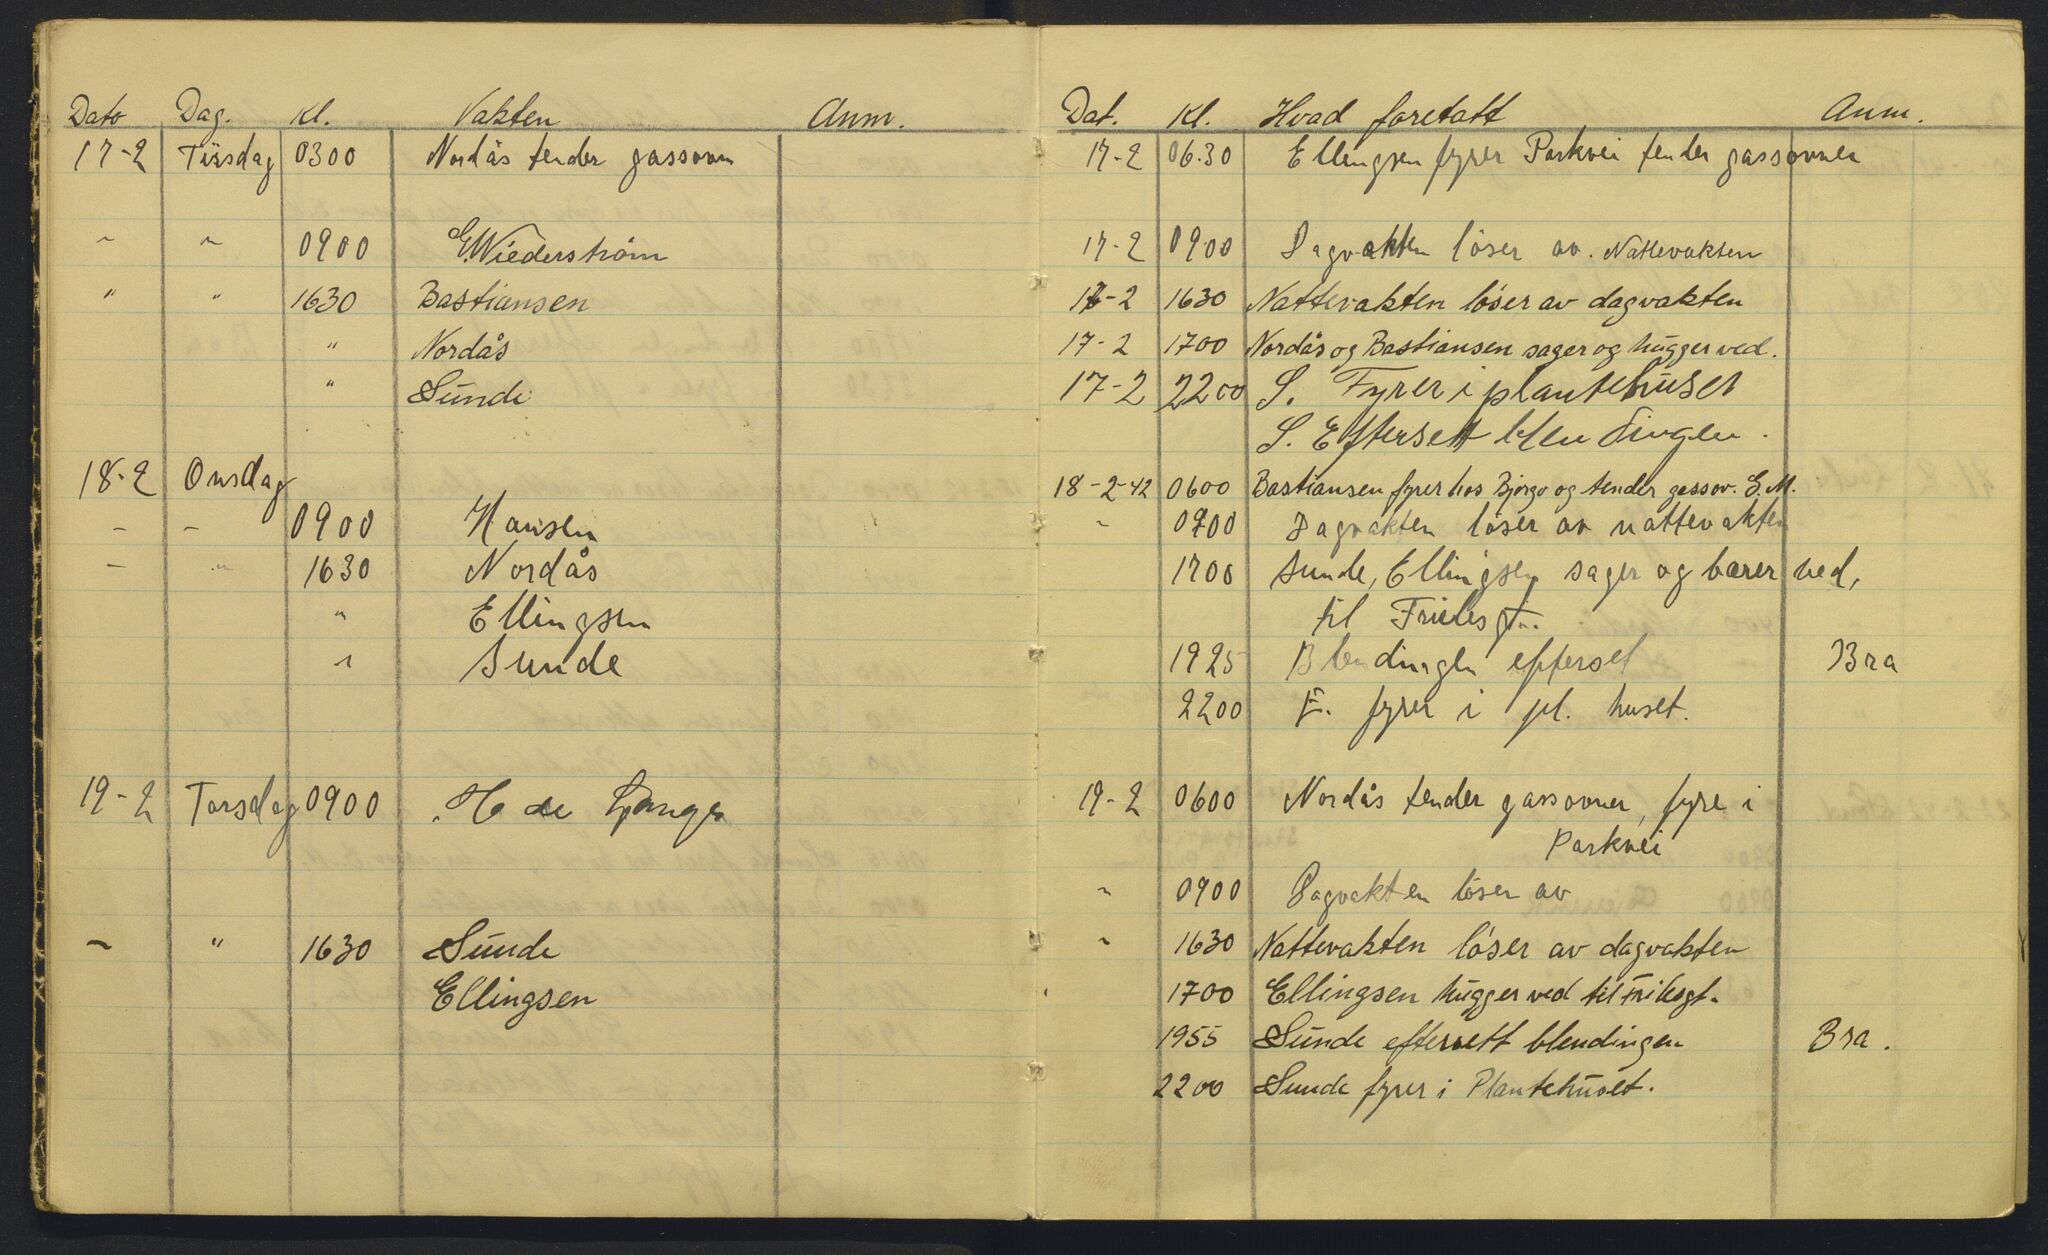 Dato Dag. Kl. Vakten Anm.
17-2 Tirsdag 0300 Nordås tender gassovn
" " 0900 E. Wiederstrøm
" " 1630 Bastiansen
" Nordås
" Sunde
18-2 Onsdag
- - 0900 Hansen
- " 1630 Nordås
" Ellingsen
" Sunde
19-2 Torsdag 0900 H de
" " 1630 Sunde
Ellingsen
Dat. Kl. Hvad foretatt Anm.
17-2 06.30 Ellingsen fyrer Parkvei tender gassovner
17-2 0900 Dagvakten löser av. Nattevakten
17-2 1630 Nattevakten löser av dagvakten
17-2 1700 Nordås og Bastiansen sager og hugger ved.
17-2 2200 S. Fyrer i plantehuset
S. Eftersett blendingen.
18-2-42 0600 Bastiansen fyrer hos Bjorgo og tender gassov. E.M.
" 0900 Dagvakten löser av nattevakten
1700 Sunde, Ellingsen sager og bærer ved,
til
1925 Blendingen efterset Bra
2200 E. fyrer i pl. huset.
19-2 0600 Nordås tender gassovner, fyre i
Parkvei
" 0900 Dagvakten löser av
" 1630 Nattevakten löser av dagvakten
1700 Ellingsen hugger ved til
1955 Sunde eftersett blendingen Bra.
2200 Sunde fyrer i Plantehuset.